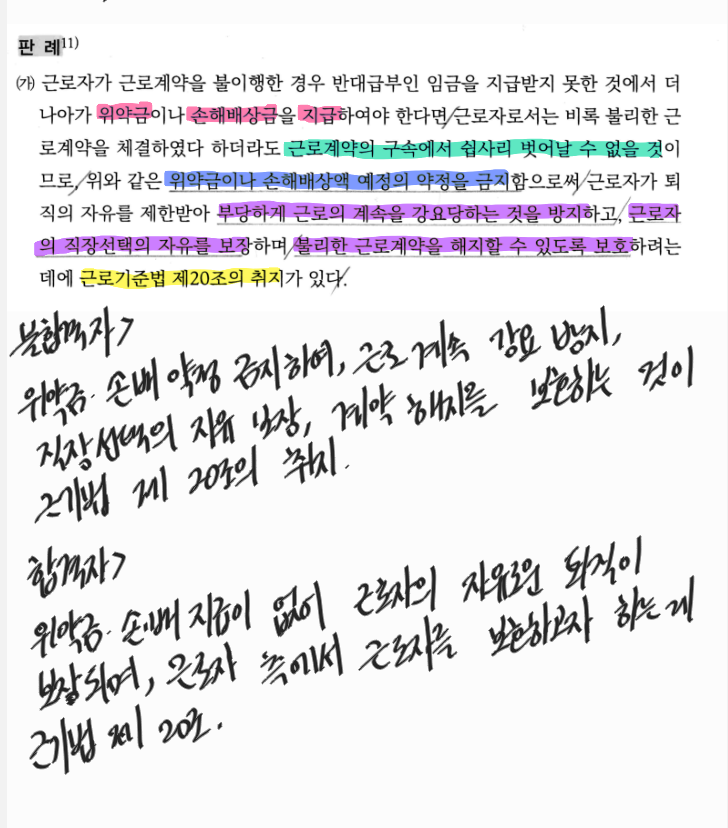 판 례11)
㈎ 근로자가 근로계약을 불이행한 경우 반대급부인 임금을 지급받지 못한 것에서 더
나아가 위약금이나 손해배상금을 지급하여야 한다면 근로자로서는 비록 불리한 근
로계약을 체결하였다 하더라도 근로계약의 구속에서 쉽사리 벗어날 수 없을 것이
므로, 위와 같은 위약금이나 손해배상액 예정의 약정을 금지함으로써 근로자가 퇴
직의 자유를 제한받아 부당하게 근로의 계속을 강요당하는 것을 방지하고, 근로자
의 직장선택의 자유를 보장하며 불리한 근로계약을 해지할 수 있도록 보호하려는
데에 근로기준법 제20조의 취지가 있다.
불합격자>
위약금·손배 약정 금지하여, 근로 계속 강요 방지,
직장선택의 자유 보장, 계약 해지를 보호하는 것이
근기법 제 20조의 취지.
합격자>
위약금·손배 지급이 없어 근로자의 자유로운 퇴직이
보장되며, 근로자 측에서 근로자를 보호하고자 하는 게
근기법 제 20조.